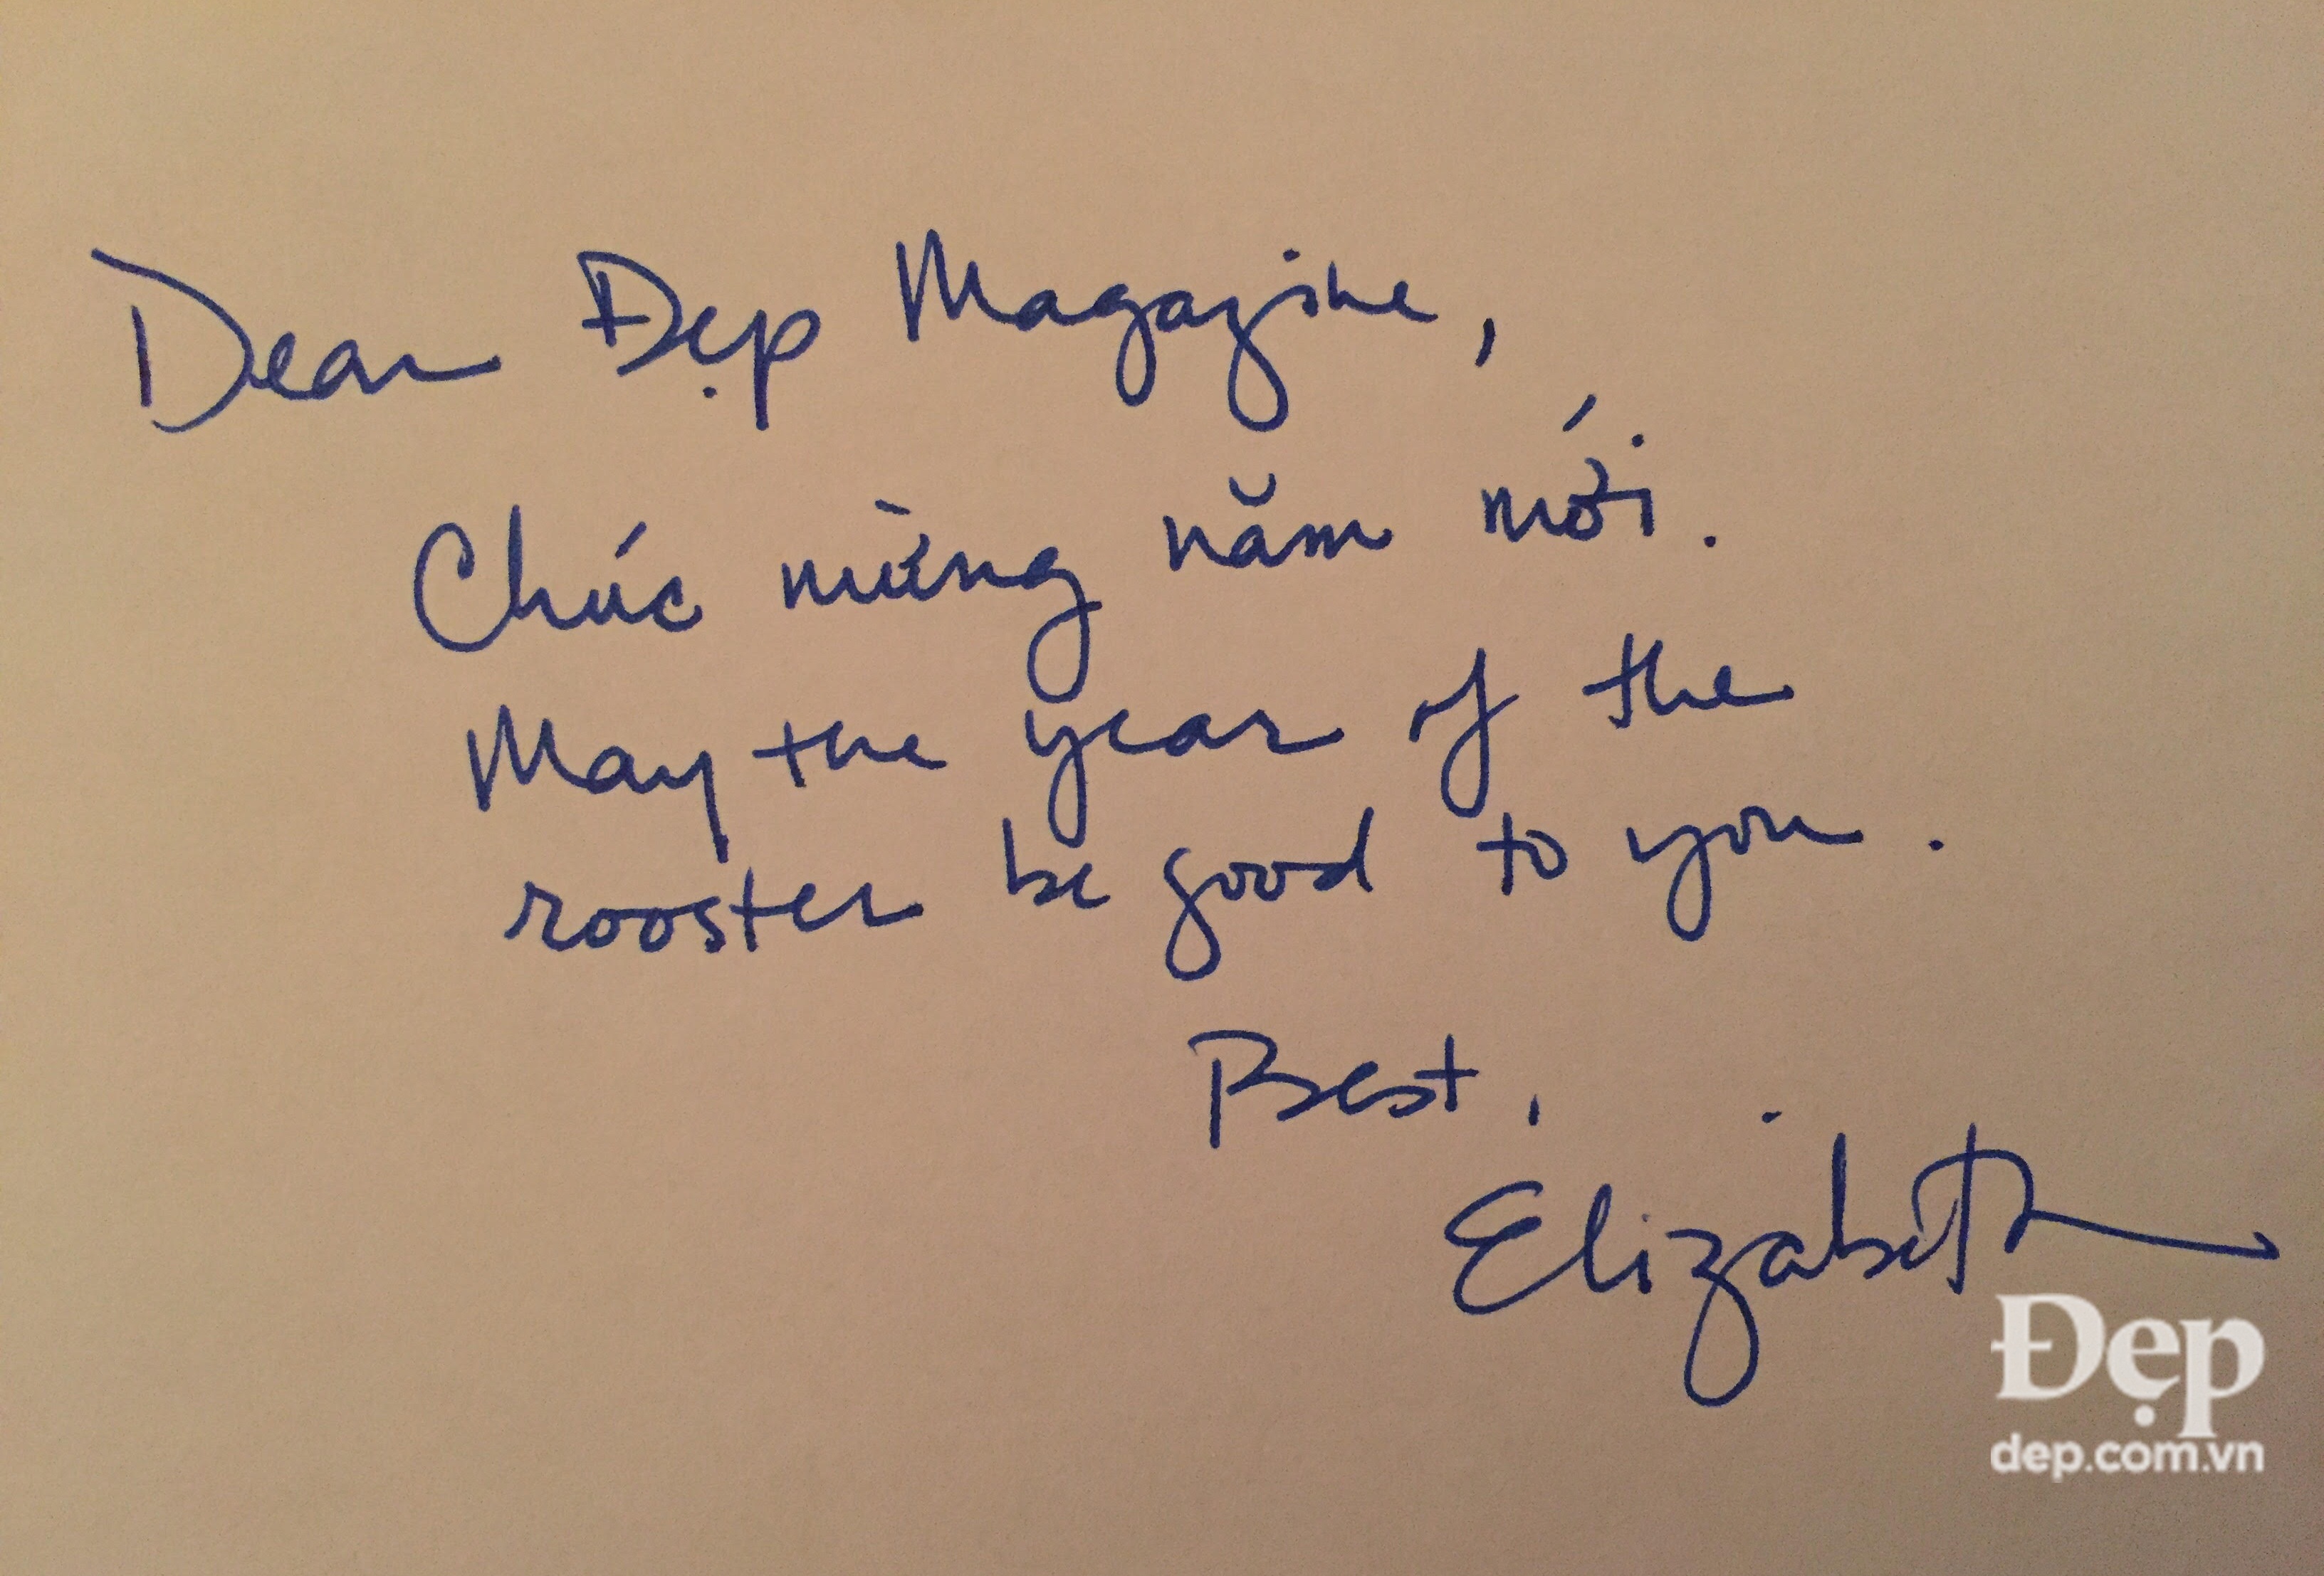 Dear Đẹp Magazine,
Chúc mừng năm mới.
May the year of the
rooster be good to you.
Best,
Elizabeth
Đẹp
dep.com.vn